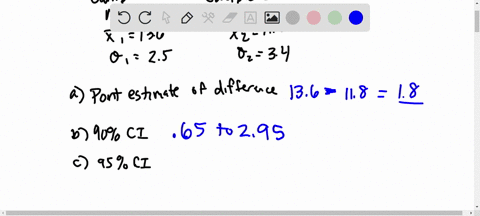 x̄₁ = 13.6
σ₁ = 2.5 σ₂ = 3.4
a) Point estimate of difference 13.6 - 11.8 = 1.8
b) 90% CI .65 to 2.95
c) 95% CI